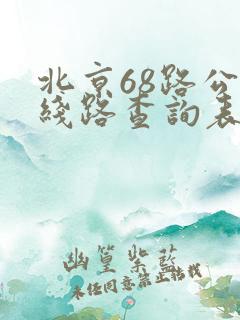 北京68路公
线路查詢表
幽篁紫藍
未经同意禁止转载